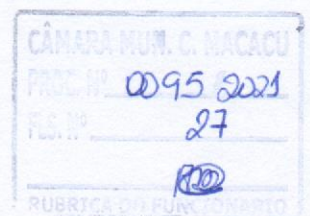 CÂMARA MUN. C. MACACU
PROC. Nº 0095 2021
FLS. Nº 27
RUBRICA DO FUNCIONÁRIO